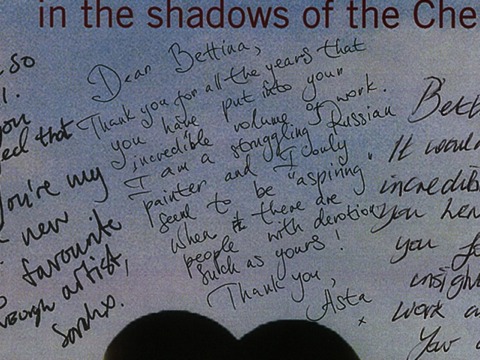 in the shadows of the Che
so
!.
you
feel that
you're my
new
favourite
through artist,
Sophx.
Dear Bettina,
Thank you for all the years that
you have put into your
incredible volume of work.
I am a struggling Russian
painter and I only
seem to be "aspiring"
when there are
people with devotion
such as yours!
Thank you,
Asta
x
Bett
It would
incredib
you
you
insigh
work a
You